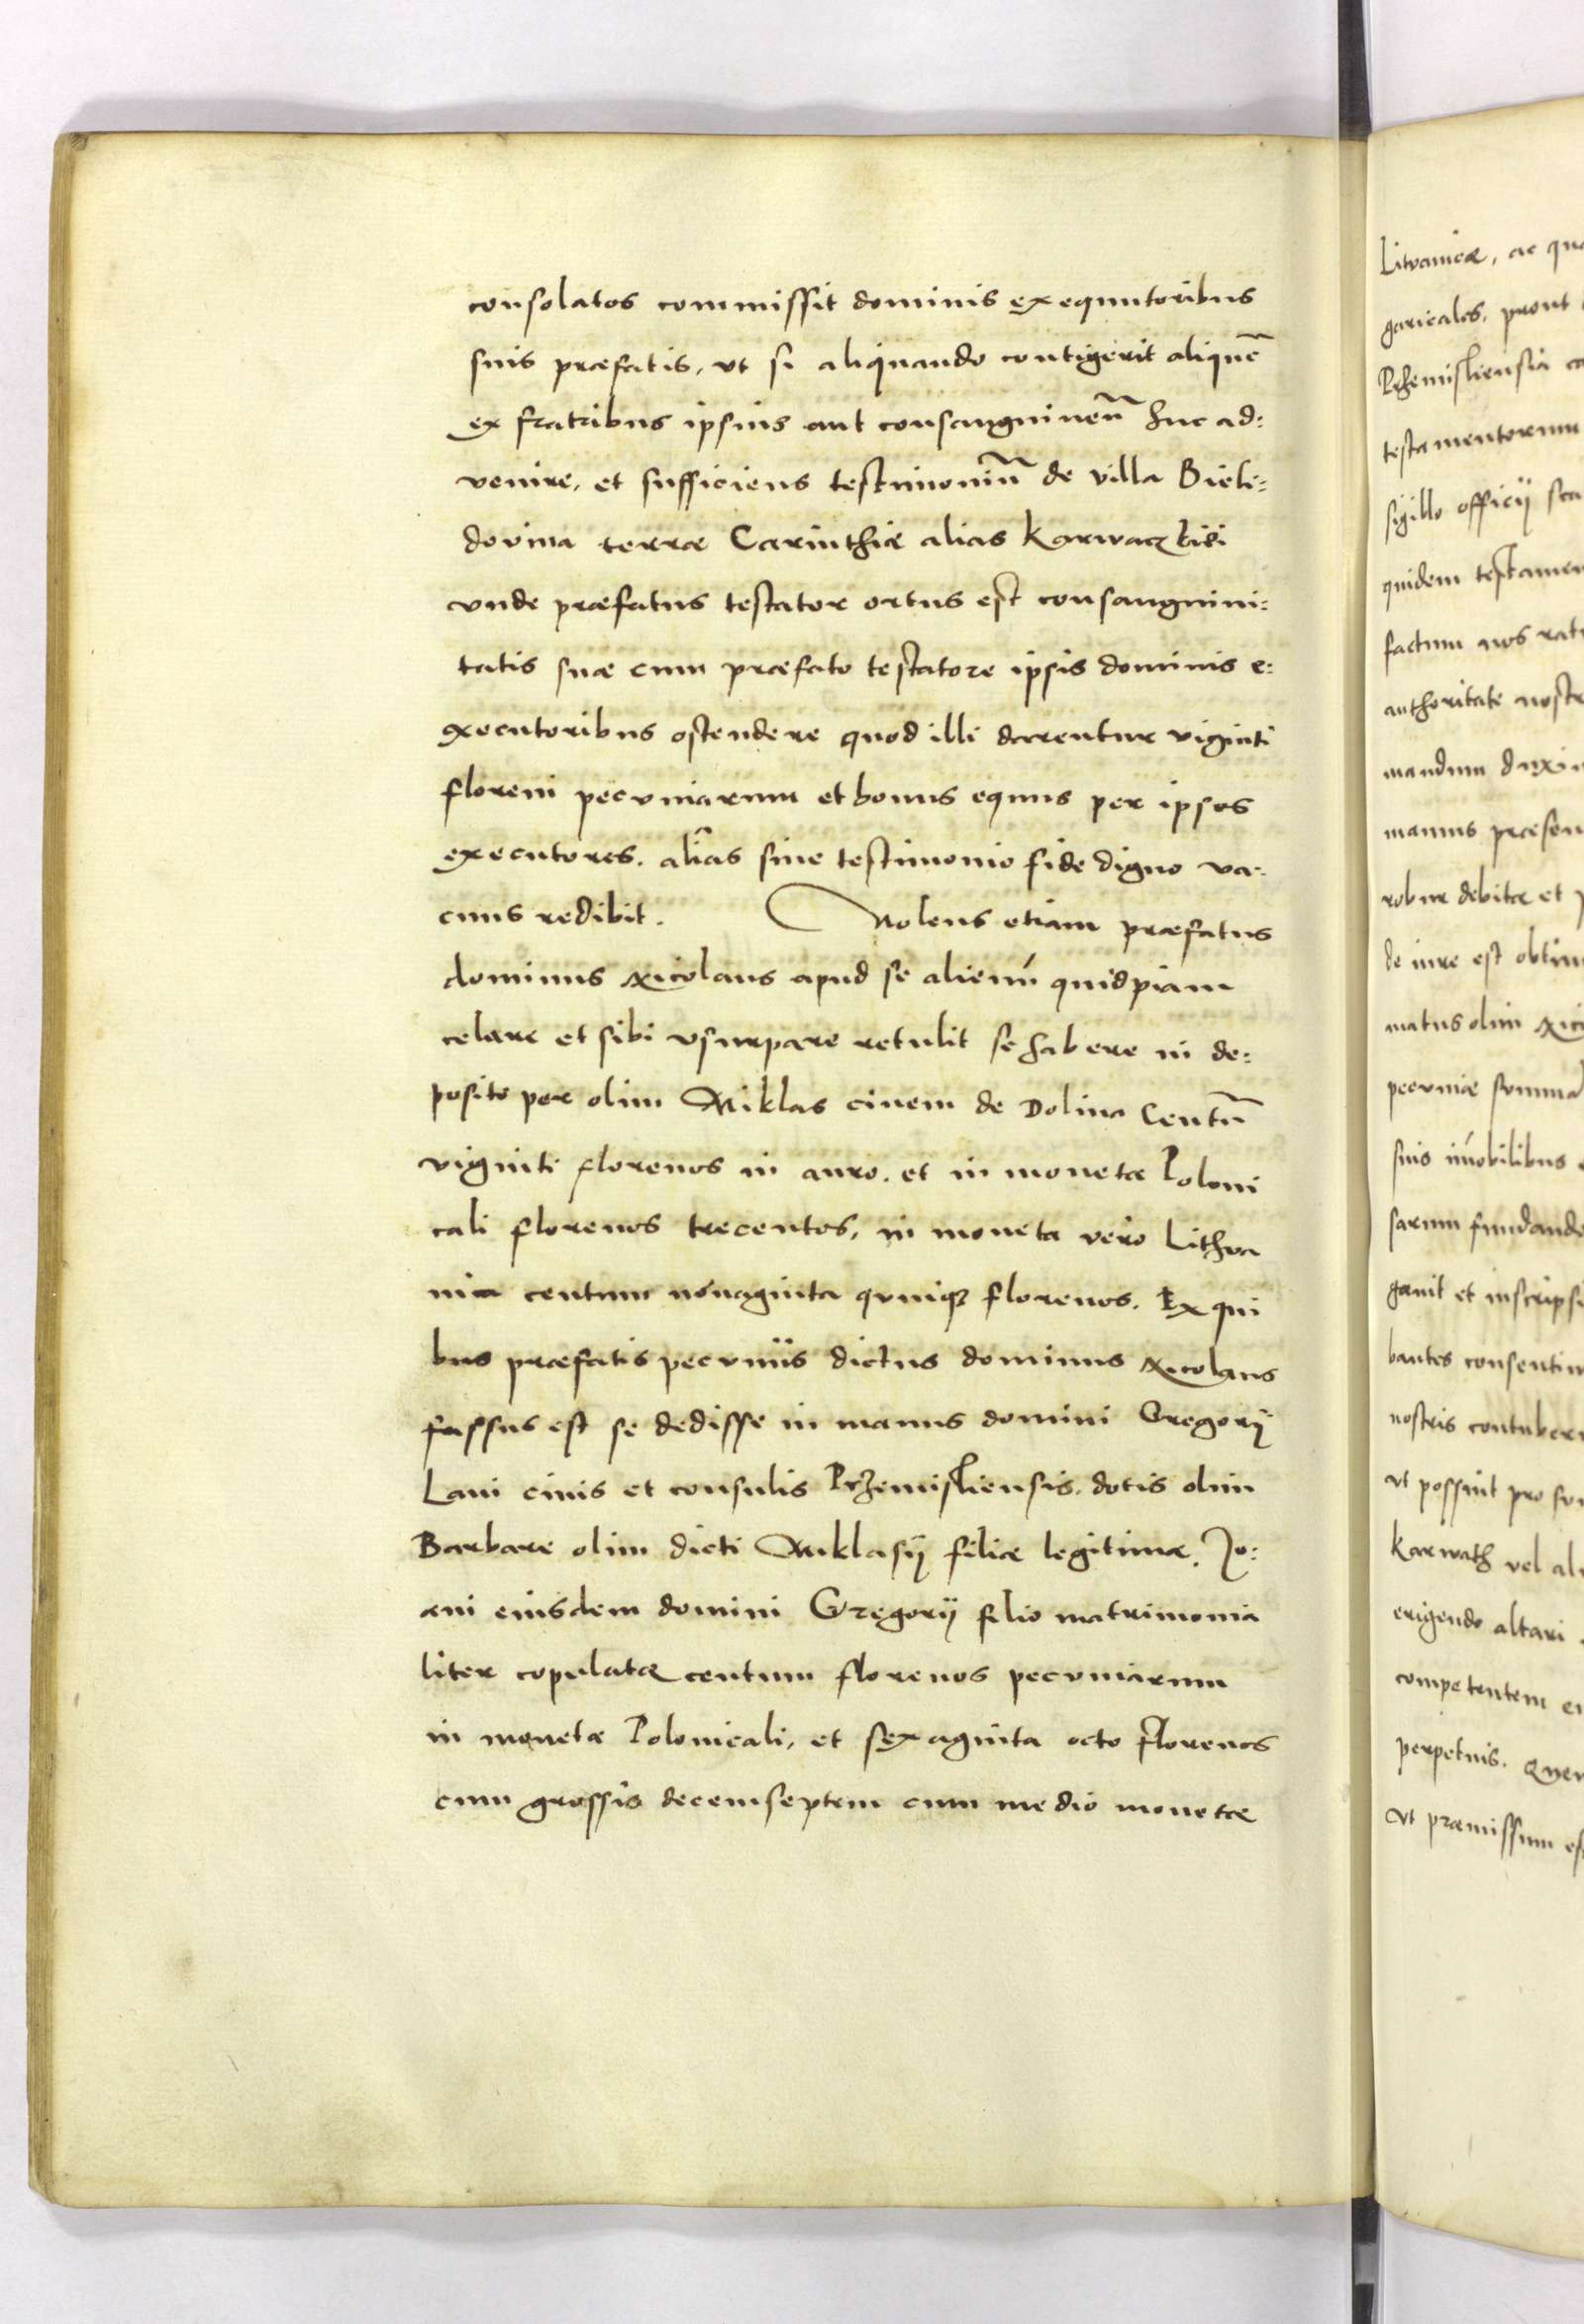 consolatos commissit dominis exequutoribus
suis præfatis, vt si aliquando contigerit aliquē
ex fratribus ipsius aut consanguineū huc ad:
venire, et sufficiens testimoniū de villa Bieli:
dovina terræ Carinthiæ alias Karwaczkiei
vnde præfatus testator ortus est consanguini:
tatis suæ cum præfato testatore ipsis dominis e:
xecutoribus ostendere quod illi darentur viginti
floreni pecuniarum et bonus equus per ipsos
executores. aliàs sine testimonio fide digno va:
cuus redibit. Nolens etiam præfatus
dominus Nicolaus apud se alienū quidpiam
celare et sibi vsurpare retulit se habere in de:
posito per olim Miklas ciuem de Dolina Centū
viginti florenos in auro. et in moneta Poloni
cali florenos trecentos, in moneta vero Lithva
nica centum nonaginta quinq; florenos. Ex qui
bus præfatis pecuniis dictus dominus Nicolaus
fassus est se dedisse in manus domini Gregorij
Lani ciuis et consulis Przemisliensis. dotis olim
Barbare olim dicti Miklasij filiæ legitimæ. Jo:
ani eiusdem domini Gregorij filio matrimonia
liter copulatæ centum florenos pecuniarum
in moneta Polonicali, et sexaginta octo florenos
cum grossis decemseptem cum medio monetæ
Litvanicæ, ac
garicales, prout
Przemisliensia
testamentorum
sigillo officij
quidem
factum nos
authoritate
mandum
manus
robur debitæ et
de iure est
matus olim
pecuniæ
suis imobilibus
sarum
gauit et
bantes
nostris
vt possint pro
Karwath vel
erigendo altari
competentem
perpetuis.
vt præmissum